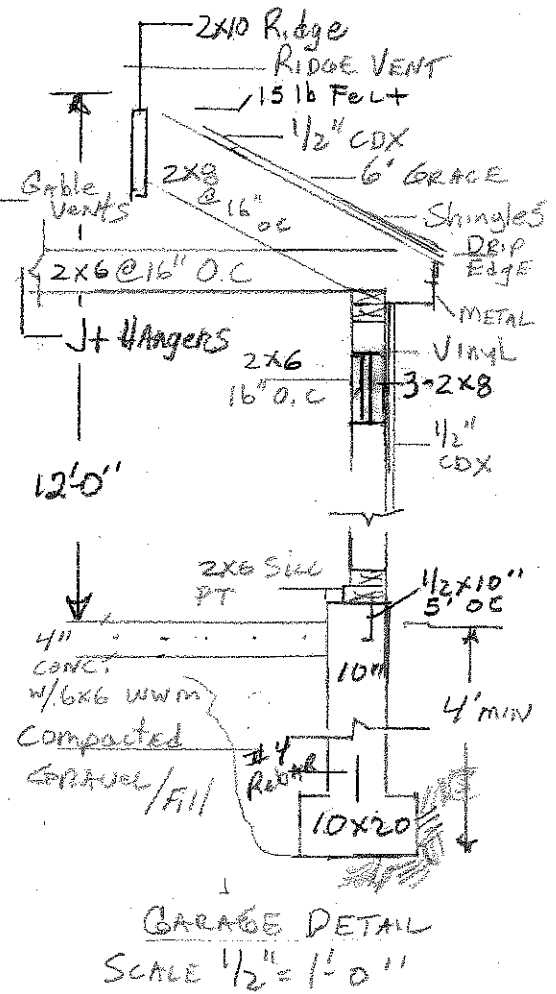 2x10 Ridge
RIDGE VENT
15 lb FeLt
1/2" CDX
6' GRACE
Shingles
DRIP
EdgE
METAL
Gable
Vents
2x8
@
16"
OC
2x6 @ 16" O.C
J+ HAngers
VinyL
2x6
16" O.C
3-2x8
1/2"
CDX
12'-0"
2x6 SiLL
PT
1/2x10"
5' OC
4"
CONC.
W/6x6 WWM
10"
4' MIN
Compacted
GRAVEL/Fill
#4
RebAR
10x20
GARAGE DETAIL
SCALE 1/2" = 1'-0"